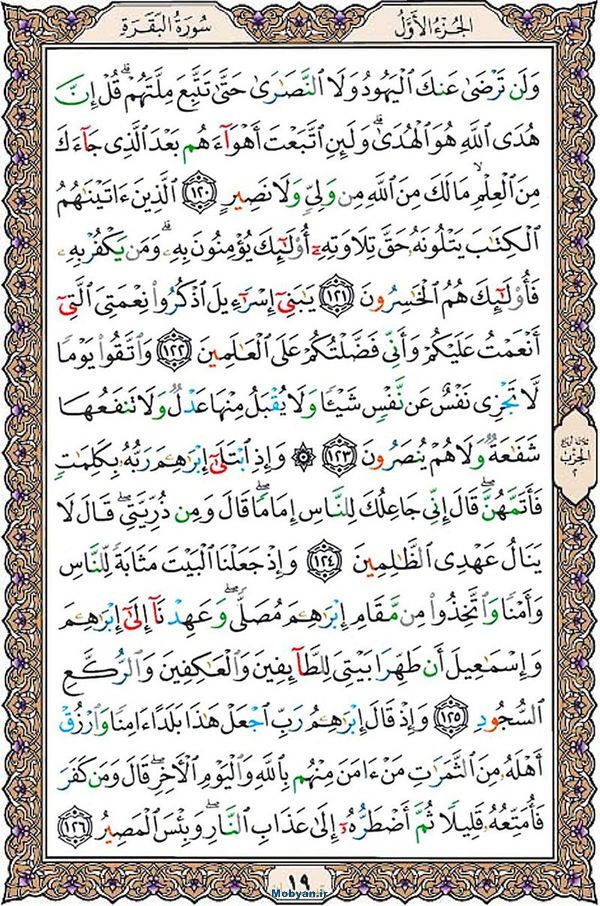 الجُزءُ الأَوَّلُ
سُورَةُ البَقَرَةِ
وَلَن تَرْضَىٰ عَنكَ ٱلْيَهُودُ وَلَا ٱلنَّصَٰرَىٰ حَتَّىٰ تَتَّبِعَ مِلَّتَهُمْ ۗ قُلْ إِنَّ
هُدَى ٱللَّهِ هُوَ ٱلْهُدَىٰ ۗ وَلَئِنِ ٱتَّبَعْتَ أَهْوَآءَهُم بَعْدَ ٱلَّذِى جَآءَكَ
مِنَ ٱلْعِلْمِ ۙ مَا لَكَ مِنَ ٱللَّهِ مِن وَلِىٍّ وَلَا نَصِيرٍ ١٢٠ ٱلَّذِينَ ءَاتَيْنَٰهُمُ
ٱلْكِتَٰبَ يَتْلُونَهُۥ حَقَّ تِلَاوَتِهِۦٓ أُو۟لَٰٓئِكَ يُؤْمِنُونَ بِهِۦ ۗ وَمَن يَكْفُرْ بِهِۦ
فَأُو۟لَٰٓئِكَ هُمُ ٱلْخَٰسِرُونَ ١٢١ يَٰبَنِىٓ إِسْرَٰٓءِيلَ ٱذْكُرُوا۟ نِعْمَتِىَ ٱلَّتِىٓ
أَنْعَمْتُ عَلَيْكُمْ وَأَنِّى فَضَّلْتُكُمْ عَلَى ٱلْعَٰلَمِينَ ١٢٢ وَٱتَّقُوا۟ يَوْمًا
لَّا تَجْزِى نَفْسٌ عَن نَّفْسٍ شَيْـًٔا وَلَا يُقْبَلُ مِنْهَا عَدْلٌ وَلَا تَنفَعُهَا
شَفَٰعَةٌ وَلَا هُمْ يُنصَرُونَ ١٢٣ ۞ وَإِذِ ٱبْتَلَىٰٓ إِبْرَٰهِـۧمَ رَبُّهُۥ بِكَلِمَٰتٍ
فَأَتَمَّهُنَّ ۖ قَالَ إِنِّى جَاعِلُكَ لِلنَّاسِ إِمَامًا ۖ قَالَ وَمِن ذُرِّيَّتِى ۖ قَالَ لَا
يَنَالُ عَهْدِى ٱلظَّٰلِمِينَ ١٢٤ وَإِذْ جَعَلْنَا ٱلْبَيْتَ مَثَابَةً لِّلنَّاسِ
وَأَمْنًا وَٱتَّخِذُوا۟ مِن مَّقَامِ إِبْرَٰهِـۧمَ مُصَلًّى ۖ وَعَهِدْنَآ إِلَىٰٓ إِبْرَٰهِـۧمَ
وَإِسْمَٰعِيلَ أَن طَهِّرَا بَيْتِىَ لِلطَّآئِفِينَ وَٱلْعَٰكِفِينَ وَٱلرُّكَّعِ
ٱلسُّجُودِ ١٢٥ وَإِذْ قَالَ إِبْرَٰهِـۧمُ رَبِّ ٱجْعَلْ هَٰذَا بَلَدًا ءَامِنًا وَٱرْزُقْ
أَهْلَهُۥ مِنَ ٱلثَّمَرَٰتِ مَنْ ءَامَنَ مِنْهُم بِٱللَّهِ وَٱلْيَوْمِ ٱلْءَاخِرِ ۖ قَالَ وَمَن كَفَرَ
فَأُمَتِّعُهُۥ قَلِيلًا ثُمَّ أَضْطَرُّهُۥٓ إِلَىٰ عَذَابِ ٱلنَّارِ ۖ وَبِئْسَ ٱلْمَصِيرُ ١٢٦
الحزب
٢
١٩
Mobyan.ir